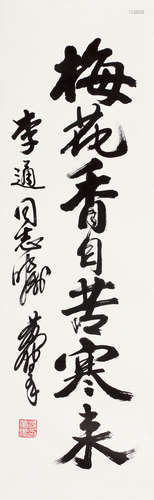 梅花香自苦寒来
李通同志嘱